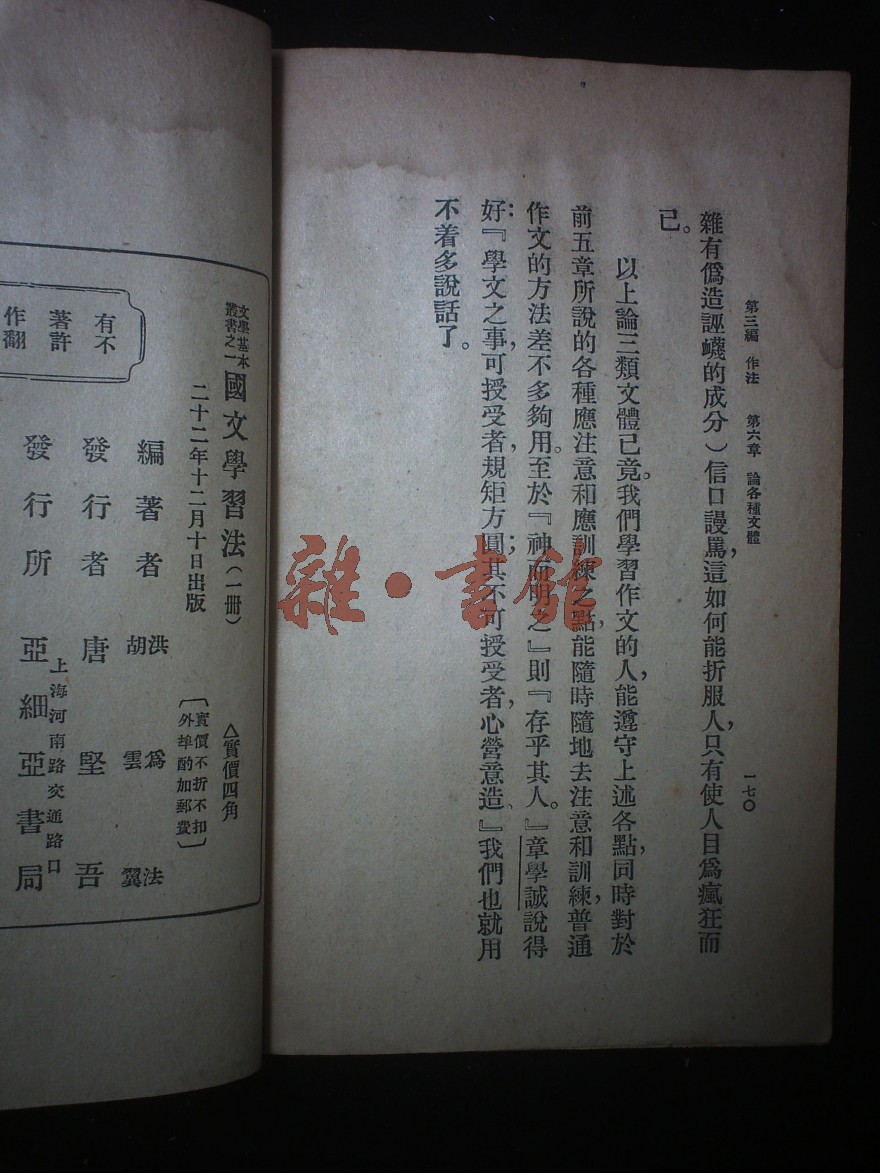 第三編 作法 第六章 論各種文體 一七〇
雜有僞造誣衊的成分）信口謾罵，這如何能折服人，只有使人目爲瘋狂而
已。
以上論三類文體已竟。我們學習作文的人，能遵守上述各點，同時對於
前五章所說的各種應注意和應訓練之點，能隨時隨地去注意和訓練，普通
作文的方法差不多夠用。至於『神而明之』則『存乎其人。』章學誠說得
好：『學文之事，可授受者，規矩方圓；其不可授受者，心營意造、』我們也就用
不着多說話了。
雜·書館
文學基本
叢書之一
國文學習法（一册）
△實價四角
二十二年十二月十日出版
〔實價不折不扣
外埠酌加郵費〕
編著者 洪爲法
胡雲翼
發行者 唐堅吾
上海河南路交通路口
發行所 亞細亞書局
有不
著許
作翻